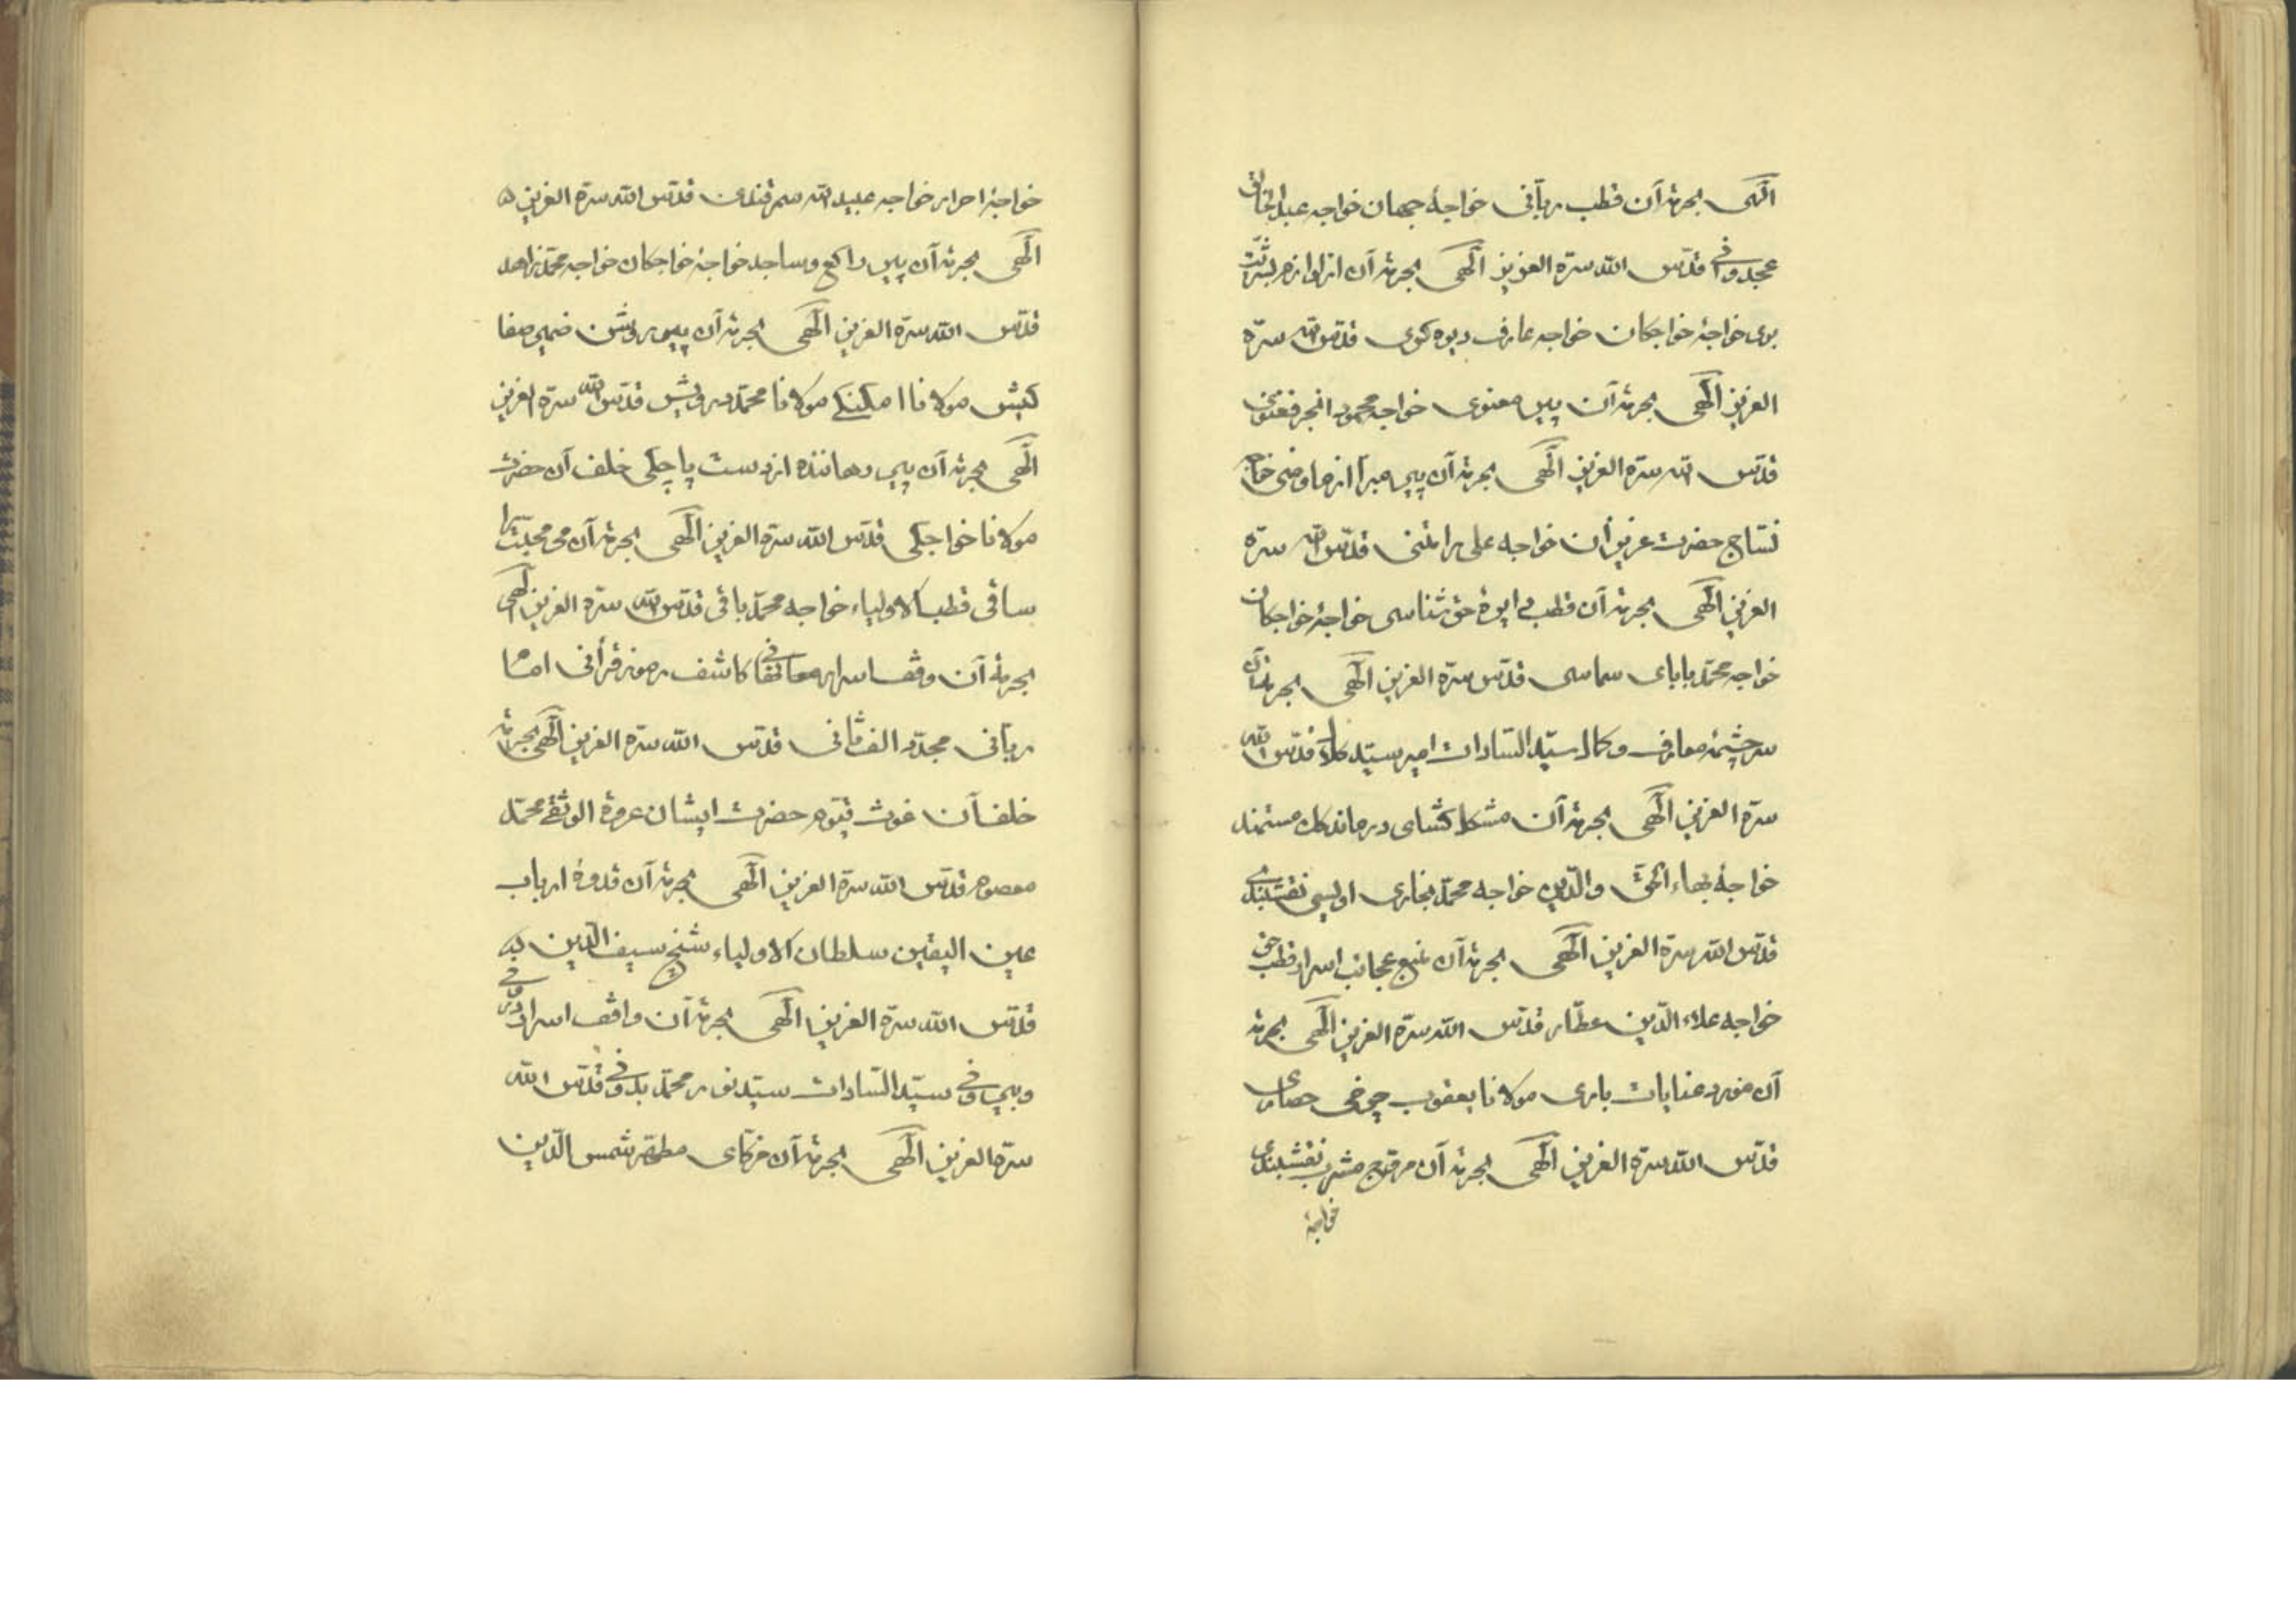 الهی بحرمة آن قطب ربآنی خواجهٔ جهان خواجه عبد الخالق
عجدوانی قدّس الله سرّه العزیز الهی بحرمة آن از لوازم بشریّت
بری خواجهٔ خواجکان خواجه عارف ریوه کوی قدّس الله سرّه
العزیز الهی بحرمة آن پیر معنوی خواجه محمود انجر فغنوی
قدّس الله سرّه العزیز الهی بحرمة آن پیر مبرا از ماومنی خواجه
نسّاج حضرت عزیزان خواجه علی رامتنی قدّس الله سرّه
العزیز الهی بحرمة آن قطب دایرهٔ حق شناسی خواجهٔ خواجکان
خواجه محمّد بابای سماسی قدّس سرّه العزیز الهی بحرمة آن
سرچشمهٔ معارف و کمال سیّد السّادات امیر سیّد کلال قدّس الله
سرّه العزیز الهی بحرمة آن مشکل کشای درماندکان مستمند
خواجهٔ بهاء الحقّ والدّین خواجه محمّد بخاری اویسی نقشبندی
قدّس الله سرّه العزیز الهی بحرمة آن منبع عجائب اسرار قطب حق
خواجه علاء الدّین عطّار قدّس الله سرّه العزیز الهی بحرمة
آن مورد عنایات باری مولانا یعقوب چرخی حصاری
قدّس الله سرّه العزیز الهی بحرمة آن مروّج مشرب نقشبندی
خواجهٔ
خواجهٔ احرار خواجه عبید الله سمرقندی قدّس الله سرّه العزیز
الهی بحرمة آن پیر راکع وساجد خواجهٔ خواجکان خواجه محمّد زاهد
قدّس الله سرّه العزیز الهی بحرمة آن پیر روشن ضمیر صفا
کیش مولانا امکنکی مولانا محمّد درویش قدّس الله سرّه العزیز
الهی بحرمة آن پیر رهاننده از دست پاچلی خلف آن حضرت
مولانا خواجکی قدّس الله سرّه العزیز الهی بحرمة آن می محبّت را
ساقی قطب الاولیاء خواجه محمّد باقی قدّس الله سرّه العزیز الهی
بحرمة آن وقف اسرار کاشف رموز قرأنی امام
ربّانی مجدّد الف ثانی قدّس الله سرّه العزیز الهی بحرمة
خلف آن غوث قیّوم حضرت ایشان عروة الوثقی محمّد
معصوم قدّس الله سرّه العزیز الهی بحرمة آن قدوهٔ ارباب
عین الیقین سلطان الاولیاء شیخ سیف الدّین
قدّس الله سرّه العزیز الهی بحرمة آن واقف اسرار
وبیرونی سیّد السّادات سیّد نور محمّد بدونی قدّس الله
سرّه العزیز الهی بحرمة آن مزکّای مطهّر شمس الدّین